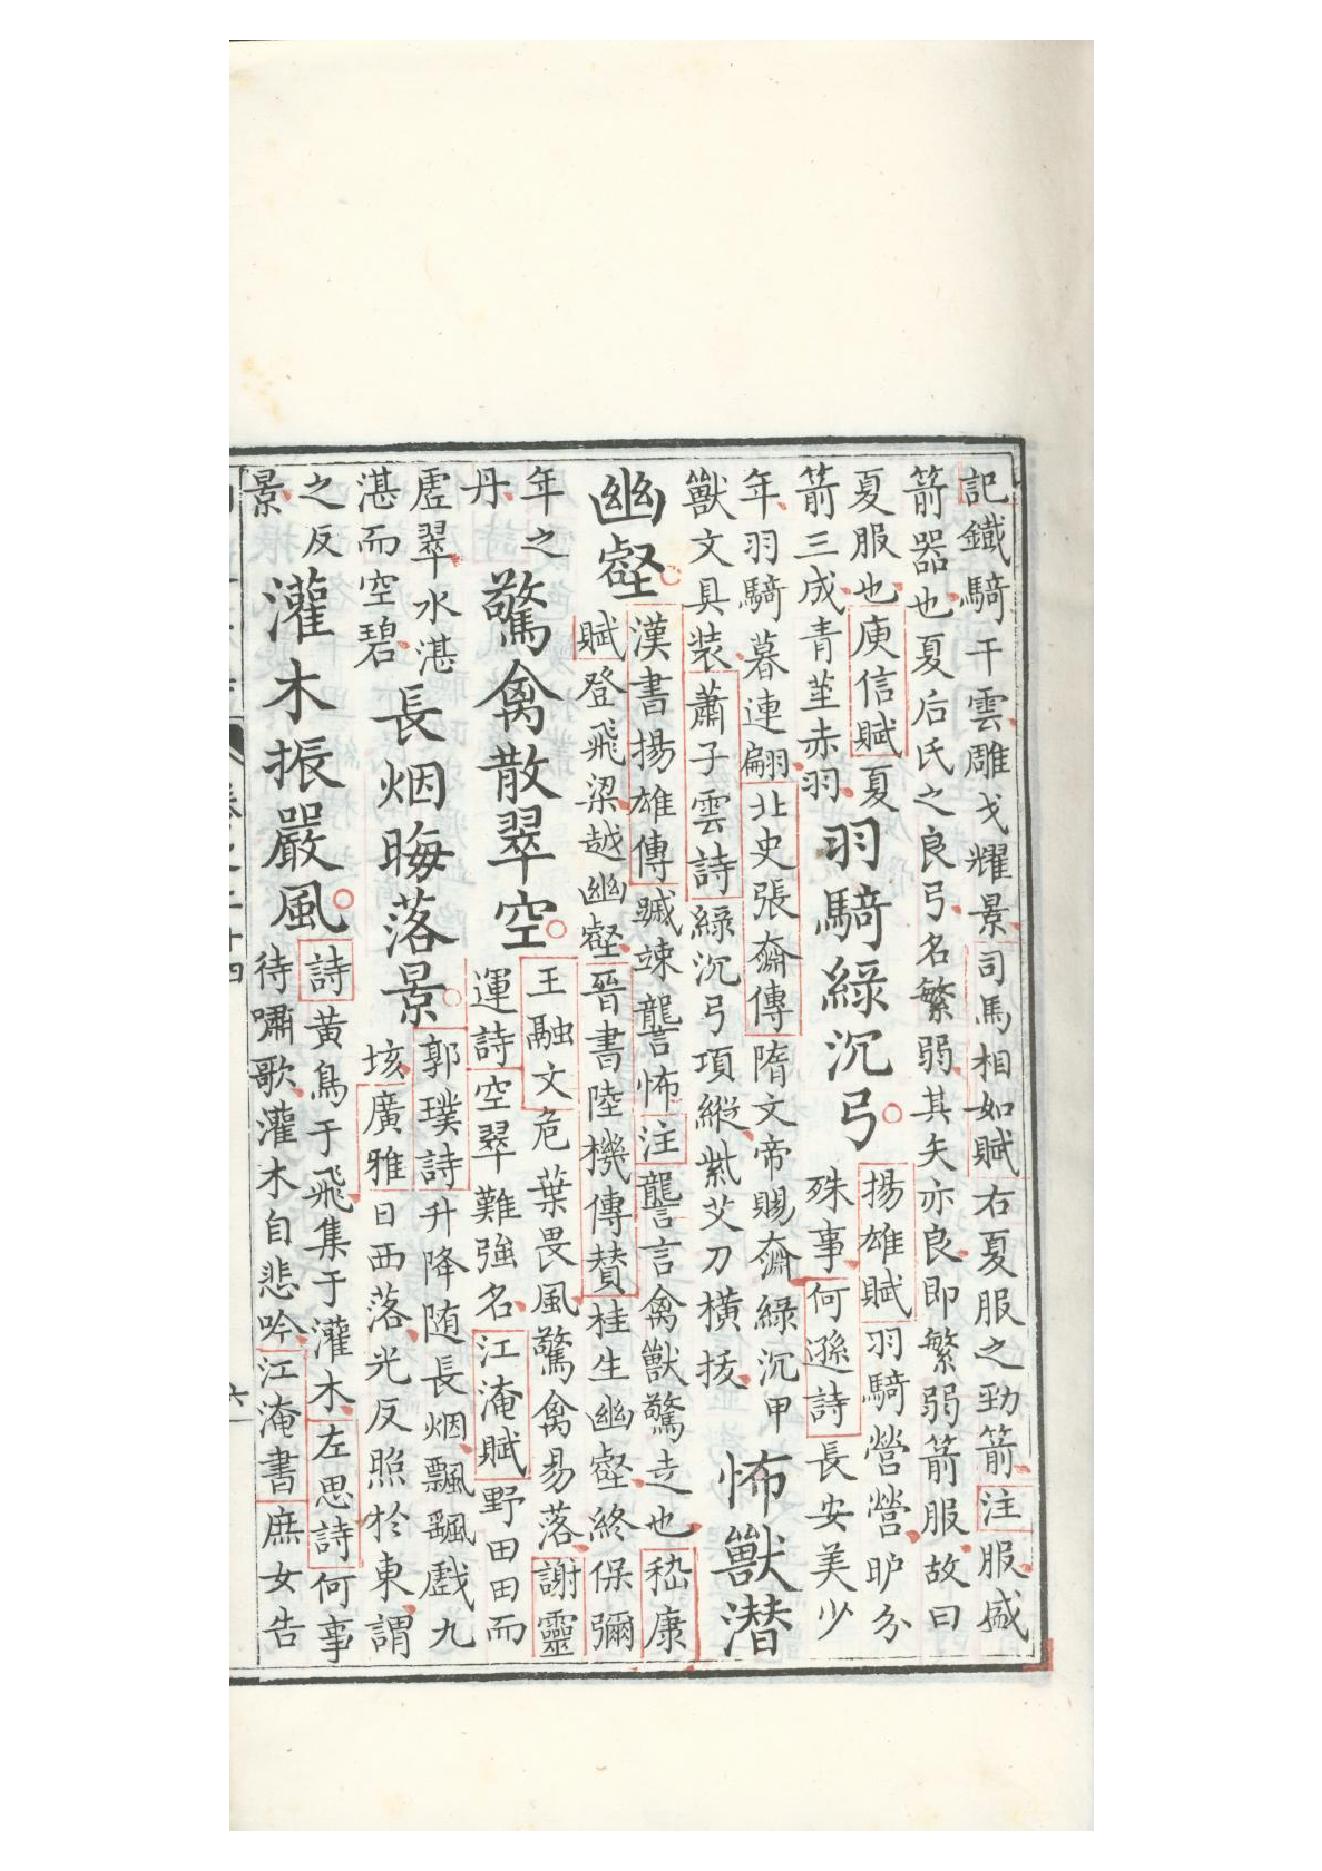 記鐵騎干雲雕戈耀景司馬相如賦右夏服之勁箭注服盛
箭器也夏后氏之良弓名繁弱其矢亦良即繁弱箭服故曰
夏服也庾信賦夏
箭三成青莖赤羽
羽騎綠沉弓
揚雄賦羽騎營營昈分
殊事何遜詩長安美少
年羽騎暮連翩北史張奫傳隋文帝賜奫綠沉甲
獸文具装蕭子雲詩綠沉弓項縱紫艾刀橫拔
怖獸潜
幽壑
漢書揚雄傳蹙竦讋怖注讋言禽獸驚走也嵇康
賦登飛梁越幽壑晉書陸機傳贊桂生幽壑終保彌
年之
丹
驚禽散翠空
王融文危葉畏風驚禽易落謝靈
運詩空翠難強名江淹賦野田田而
虛翠水湛
湛而空碧
長烟晦落景
郭璞詩升降随長烟飄颻戲九
垓廣雅日西落光反照於東謂
之反
景
灌木振嚴風
詩黃鳥于飛集于灌木左思詩何事
待嘯歌灌木自悲吟江淹書庶女告